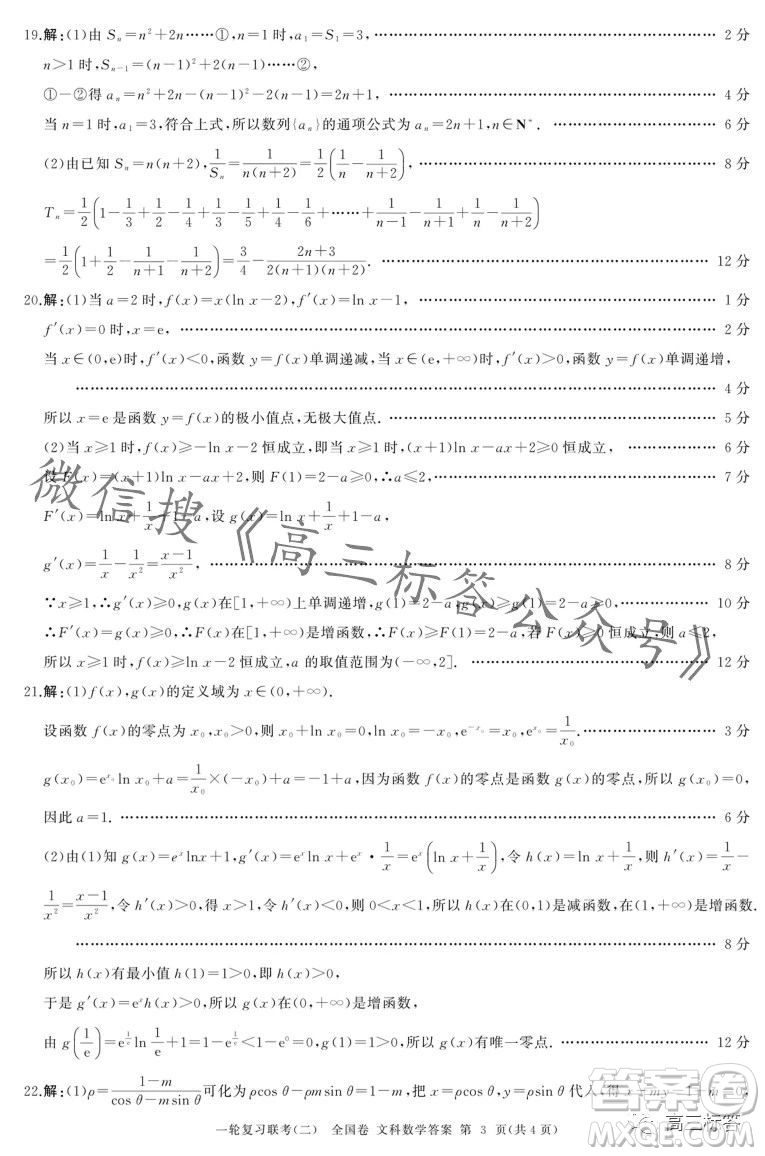 19.解:(1)由 Sₙ=n²+2n……①,n=1 时,a₁=S₁=3,………… 2 分
n>1 时,Sₙ₋₁=(n-1)²+2(n-1)……②,
①-②得 aₙ=n²+2n-(n-1)²-2(n-1)=2n+1,………… 4 分
当 n=1 时,a₁=3,符合上式,所以数列{aₙ}的通项公式为 aₙ=2n+1,n∈N*. ………… 6 分
(2)由已知 Sₙ=n(n+2),1/Sₙ=1/(n(n+2))=1/2(1/n-1/(n+2)),………… 8 分
Tₙ=1/2(1-1/3+1/2-1/4+1/3-1/5+1/4-1/6+……+1/(n-1)-1/(n+1)+1/n-1/(n+2))
=1/2(1+1/2-1/(n+1)-1/(n+2))=3/4-(2n+3)/(2(n+1)(n+2)). ………… 12 分
20.解:(1)当 a=2 时,f(x)=x(ln x-2),f′(x)=ln x-1,………… 1 分
f′(x)=0 时,x=e,………… 2 分
当 x∈(0,e)时,f′(x)<0,函数 y=f(x)单调递减,当 x∈(e,+∞)时,f′(x)>0,函数 y=f(x)单调递增,
………… 4 分
所以 x=e 是函数 y=f(x)的极小值点,无极大值点.………… 5 分
(2)当 x≥1 时,f(x)≥-ln x-2 恒成立,即当 x≥1 时,(x+1)ln x-ax+2≥0 恒成立,………… 6 分
设 F(x)=(x+1)ln x-ax+2,则 F(1)=2-a≥0,∴a≤2,………… 7 分
F′(x)=ln x+1/x+1-a,设 g(x)=ln x+1/x+1-a,
g′(x)=1/x-1/x²=(x-1)/x²,………… 8 分
∵x≥1,∴g′(x)≥0,g(x)在[1,+∞)上单调递增,g(1)=2-a,g(x)≥g(1)=2-a≥0,………… 10 分
∴F′(x)=g(x)≥0,∴F(x)在[1,+∞)是增函数,F(x)≥F(1)=2-a,若 F(x)≥0恒成立,则 a≤2,
所以 x≥1 时,f(x)≥-ln x-2 恒成立,a 的取值范围为(-∞,2]. ………… 12 分
21.解:(1)f(x),g(x)的定义域为 x∈(0,+∞).
设函数 f(x)的零点为 x₀,x₀>0,则 x₀+ln x₀=0,ln x₀=-x₀,e^(-x₀)=x₀,e^(x₀)=1/x₀.………… 3 分
g(x₀)=e^(x₀)ln x₀+a=1/x₀×(-x₀)+a=-1+a,因为函数 f(x)的零点是函数 g(x)的零点,所以 g(x₀)=0,
因此 a=1. ………… 6 分
(2)由(1)知 g(x)=eˣlnx+1,g′(x)=eˣln x+eˣ·1/x=eˣ(ln x+1/x),令 h(x)=ln x+1/x,则 h′(x)=1/x-
1/x²=(x-1)/x²,令 h′(x)>0,得 x>1,令 h′(x)<0,则 0<x<1,所以 h(x)在(0,1)是减函数,在(1,+∞)是增函数.
………… 8 分
所以 h(x)有最小值 h(1)=1>0,即 h(x)>0,
于是 g′(x)=eˣh(x)>0,所以 g(x)在(0,+∞)是增函数,
由 g(1/e)=e^(1/e)ln 1/e+1=1-e^(1/e)<1-e⁰=0,g(1)>0,所以 g(x)有唯一零点.………… 12 分
22.解:(1)ρ=(1-m)/(cos θ-msin θ)可化为 ρcos θ-ρmsin θ=1-m,把 x=ρcos θ,y=ρsin θ代入,得 x-my=1-m,
一轮复习联考(二) 全国卷 文科数学答案 第 3 页(共 4 页)
微信搜《高三标答公众号》
答案圈
MXQE.COM
高三标答